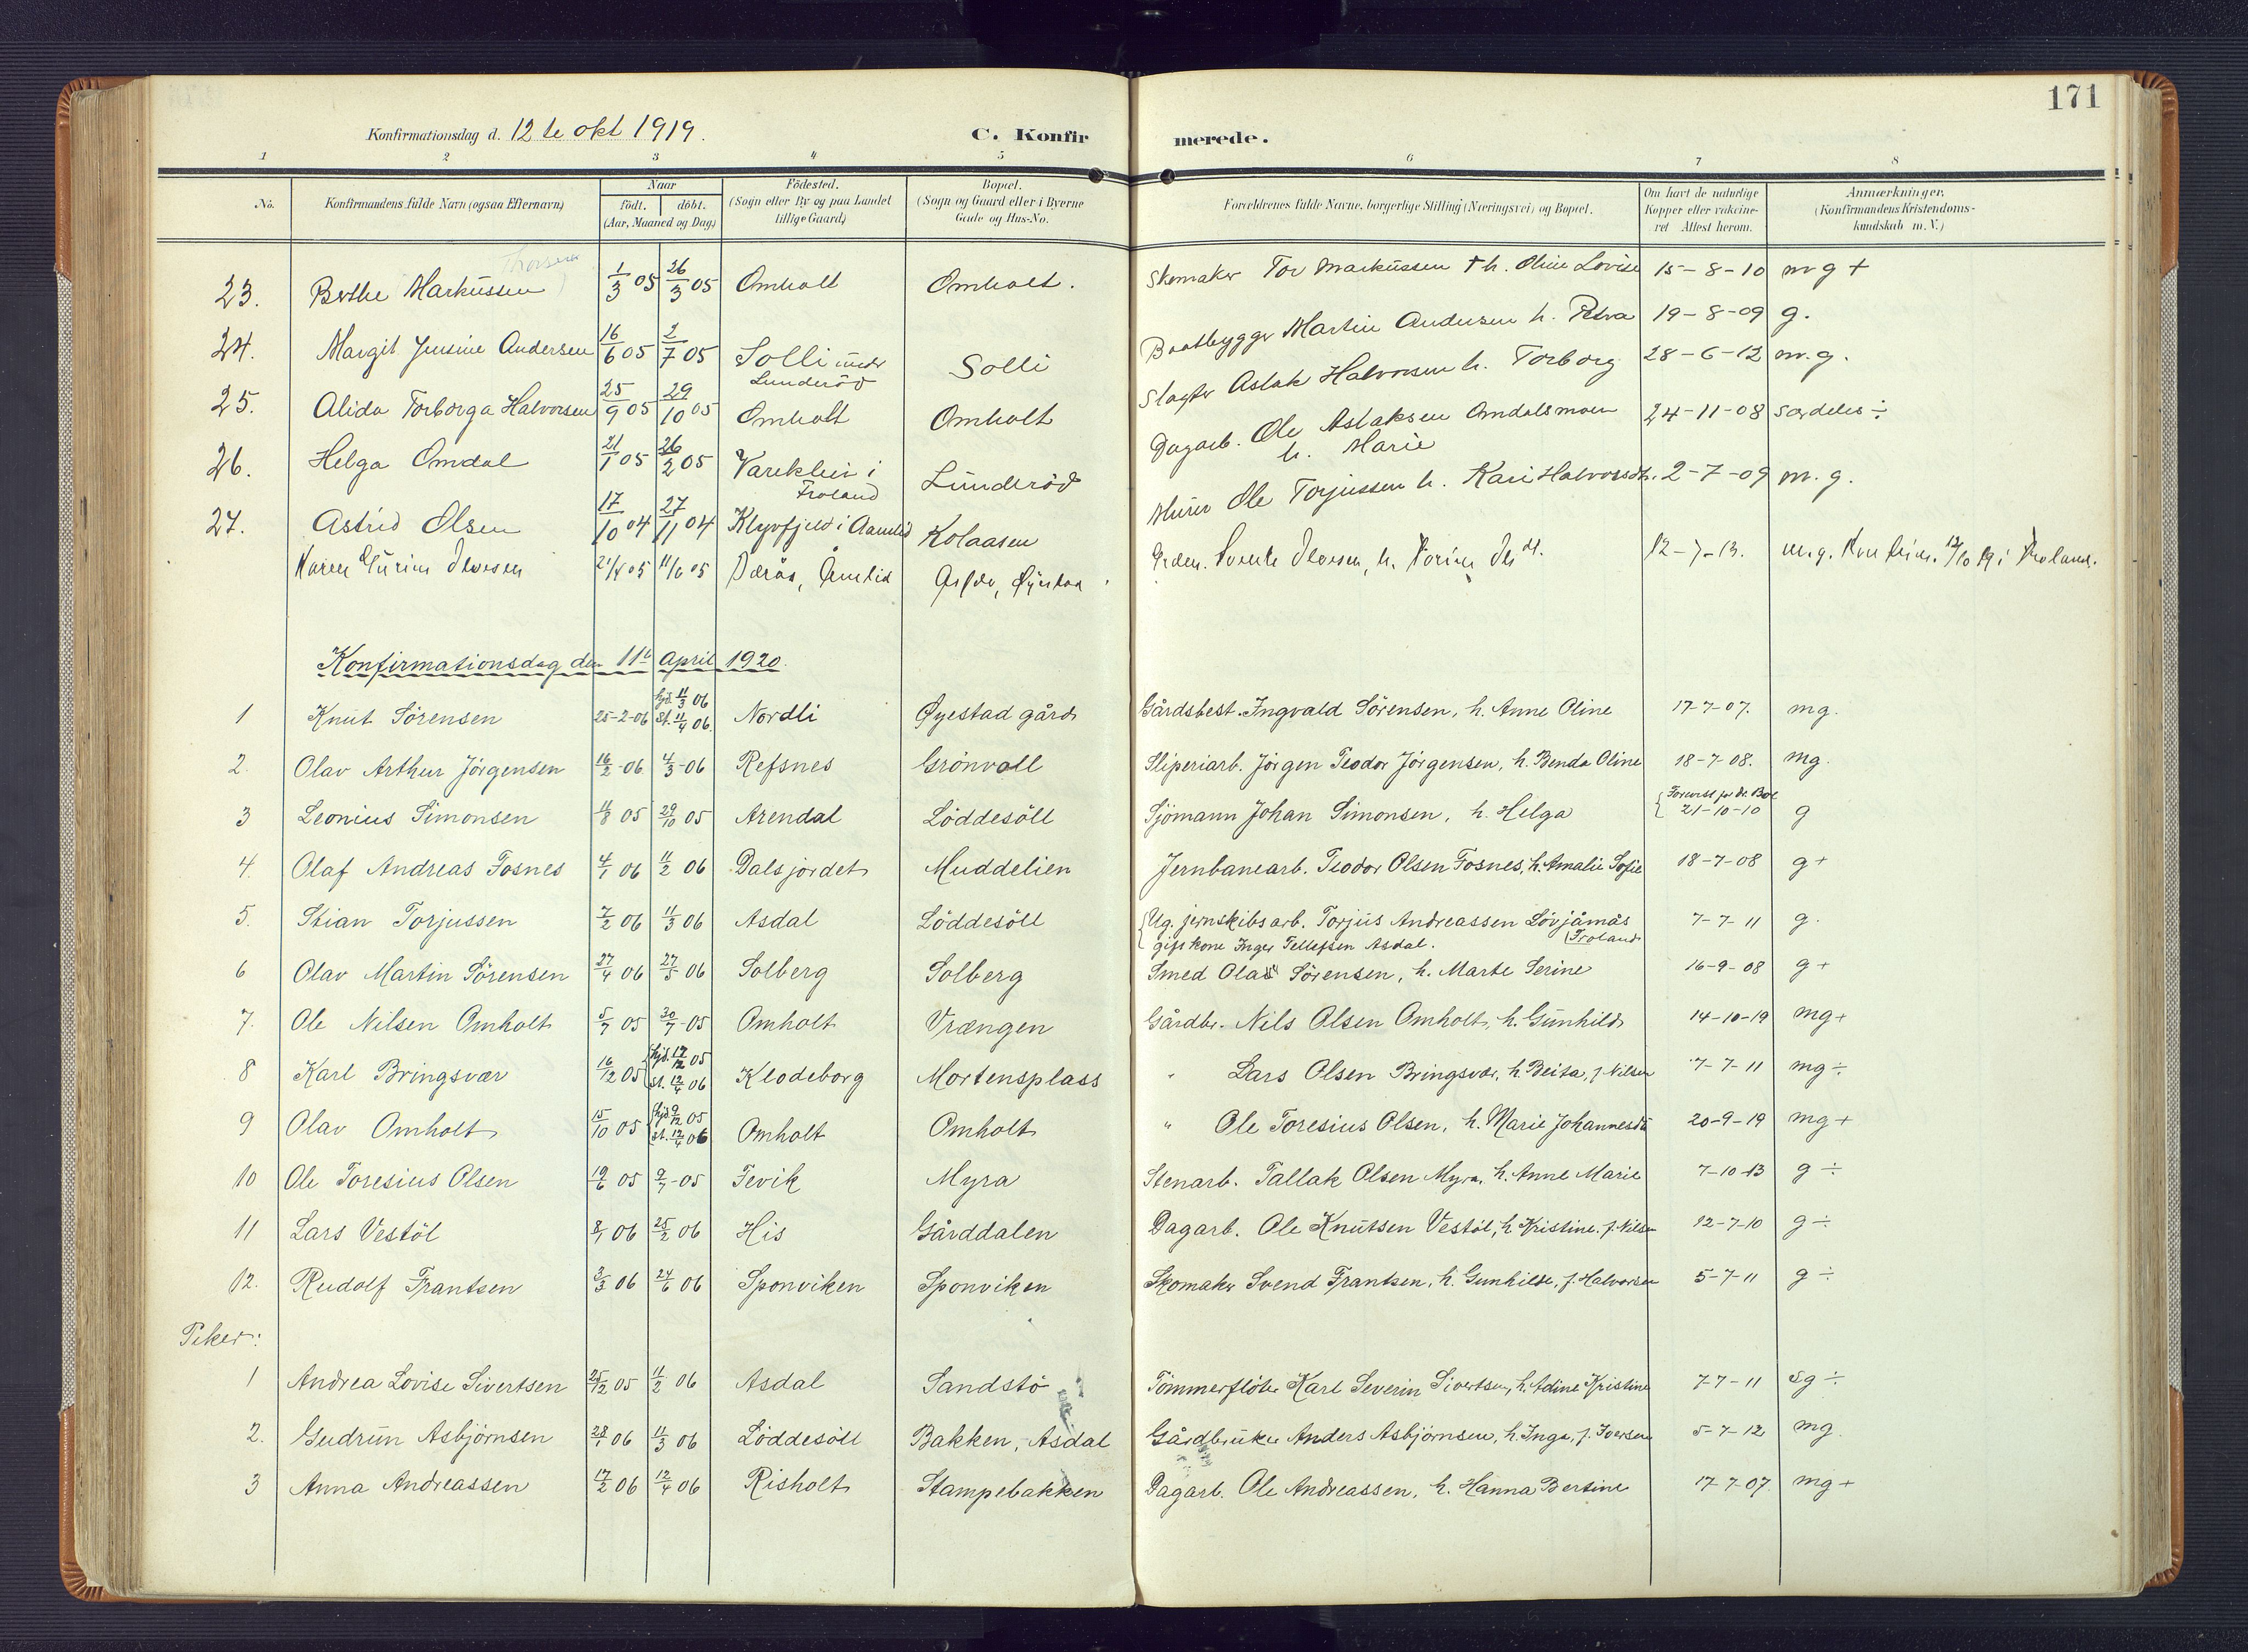 171
Konfirmationsdag d. 12te okt 1919. C. Konfir merede.
1 2 3 4 5 6 7 8
No. Konfirmandens fulde Navn (ogsaa Efternavn) Naar født. døbt. (Aar, Maaned og Dag) Födested. (Sogn eller By og paa Landet tillige Gaard) Bopæl. (Sogn og Gaard eller i Byerne Gade og Hus-No. Forældrenes fulde Navne, borgerlige Stilling (Næringsvei) og Bopæl. Om havt de naturlige Kopper eller vakcineret Attest herom. Anmærkninger. (Konfirmandens Kristendomskundskab m. V.)
23. Berthe Markussen 1/3 05 26/3 05 Omholt Omholt. Skomaker Tor Markussen + h. Oline Lovise 15-8-10 mg +
24. Margit Jensine Andersen 16/6 05 2/7 05 Solli under Lunderöd Solli Baatbygger Martin Andersen h. Petra 19-8-09 g.
25. Alida Torborga Halvorsen 25/9 05 29/10 05 Omholt Omholt Slagter Aslak Halvorsen h. Torborg 28-6-12 m.g.
26. Helga Omdal 21/1 05 26/2 05 Vareklei i Froland Lunderöd Dagarb. Ole Aslaksen Omdalsmoen h. Marie 24-11-08 Særdeles ÷
27. Astrid Olsen 17/10 04 27/11 04 Klyvfjeld i Aamlid Kolaasen Murer Ole Torjussen h. Kari Halvorsdt. 2-7-09 m.g.
Karen 21/4 05 11/6 05 Åmlid 12-7-13. m.g. 12/10 19 i Froland.
Konfirmationsdag den 11te April 1920.
1 Knut Sörensen 25-2-06 hjd. 11/3 06 st. 11/4 06. Nordli Øyestad gård Gårdsbest. Ingvald Sörensen, h. Anne Oline 17-7-07. mg.
2. Olav Arthur Jörgensen 16/2-06 4/3-06 Refsnes Grönvoll Sliperiarb. Jörgen Teodor Jörgensen, h. Benda Oline 18-7-08. mg.
3 Leonius Simonsen 11/8 05 29/10 05 Arendal Löddesöll Sjömann Johan Simonsen, h. Helga 21-10-10 g
4. Olaf Andreas Fosnes 4/1 06 11/2 06 Dalsjordet Muddelien Jernbanearb. Teodor Olsen Fosnes, h. Amalie Sofie 18-7-08 g+
5. Stian Torjussen 7/2 06 11/3 06 Asdal Löddesöll Ug. jernskibsarb. Torjus Andreassen Lövjåmås (Froland
gift kone Inger Tellefsen Asdal. 7-7-11 g.
6 Olav Martin Sörensen 27/4 06 27/5 06 Solberg Solberg Smed Olaf Sörensen, h. Marte Serine 16-9-08 g+
7. Ole Nilsen Omholt 5/7 05 30/7-05 Omholt Vrængen Gårdbr. Nils Olsen Omholt, h. Gunhild 14-10-19 mg+
8 Karl Bringsvær 16/12 05 hjd. 17/12 05 st. 12/4 06 Klodeborg Mortensplass " Lars Olsen Bringsvær, h. Beita, f. Nilsen 7-7-11 mg÷
9 Olav Omholt 15/10 05 hjd. 9/12 05 st. 12/4 06 Omholt Omholt " Ole Toresius Olsen, h. Marie Johannesdt 20-9-19 mg+
10 Ole Toresius Olsen 19/6 05 9/7-05 Fevik Myra Stenarb. Tallak Olsen Myra, h. Anne Marie 7-10-13 g÷
11 Lars Vestöl 8/1 06 25/2 06 His Gårddalen Dagarb. Ole Knutsen Vestöl, h. Kristine f. Nilsen 12-7-10 g÷
12. Rudolf Frantsen 3/3 06 24/6 06 Sponviken Sponviken Skomaker Svend Frantsen, h. Gunhilde, f. Halvorsen 5-7-11 g÷
Piker:
1 Andrea Lovise Sivertsen 25/12 05 11/2 06 Asdal Sandstö Tömmerflöter Karl Severin Sivertsen, h. Adine Kristine 7-7-11 sg÷
2. Gudrun Asbjörnsen 28/1 06 11/3 06 Löddesöll Bakken, Asdal Gårdbruker Anders Asbjörnsen, h. Inga, f. Iversen 5-7-12 mg.
3 Anna Andreassen 17/2 06 12/4 06 Risholt Stampebakken Dagarb. Ole Andreassen, h. Hanna Bertine 17-7-07. mg+